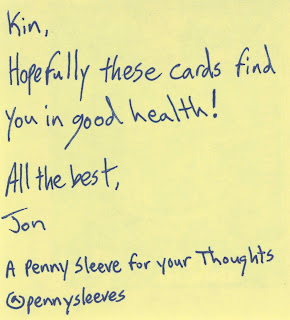 Kin,
Hopefully these cards find
you in good health!
All the best,
Jon
A Penny Sleeve for your Thoughts
@pennysleeves